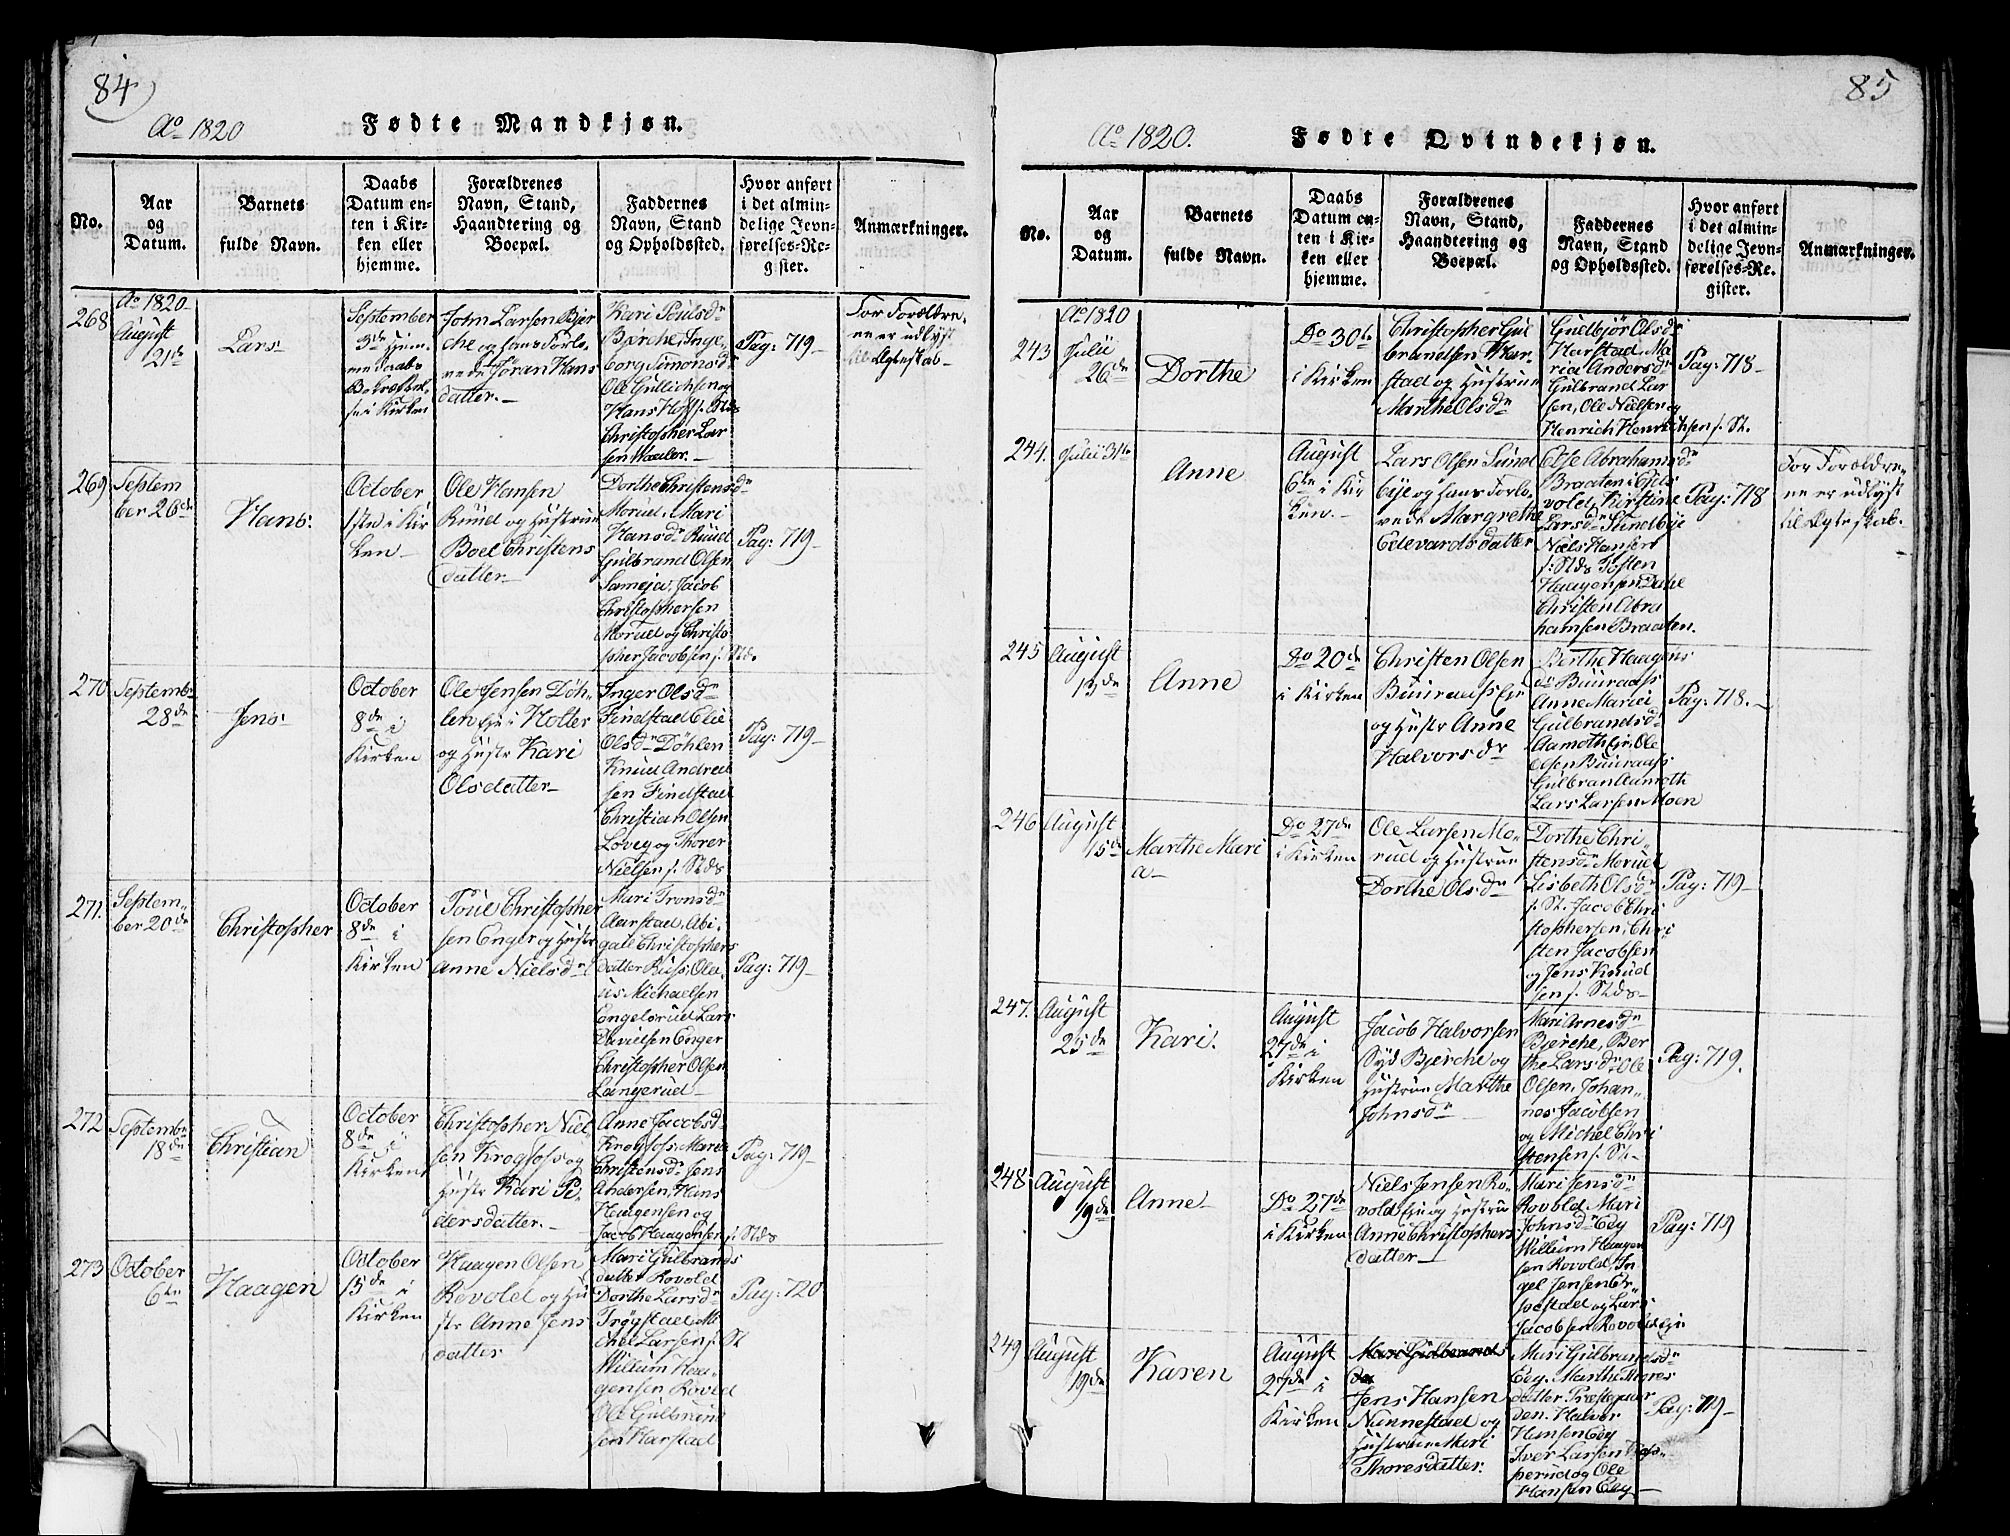 84)
Ao 1820
Fødte Mandkjøn.
No.
Aar
og
Datum.
Barnets
fulde Navn.
Daabs
Datum en-
ten i Kir-
ken eller
hjemme.
Forældrenes
Navn, Stand,
Haandtering og
Boepæl.
Faddernes
Navn, Stand
og Opholdssted.
Hvor anført
i det almin-
delige Jevn-
førelses-Re-
gister.
Anmærkninger.
268
Ao 1820
August
21de
Lars
September
3de Hjem-
me daabs
i Kirken
John Larsen Bjer
che og hans forlo-
vede Jöran Hans
datter.
Kari Poulsdr
Bjerche, Inge
borg Simonsdr
Ole Gullichsen og
Hans Hoff f. Stds
Christopher Lar
sen Hæxler.
Pag: 719
For Forældre-
ne er udlyst
til Ægteskab
269
Septem
ber 26de
Hans.
October
1sten i Kir
ken
Ole Hansen
Ruud og Hustrue
Boel Christens
datter
Dorthe Christensdr
Morud, Mari
Hansdr Ruud
Gulbrand Olsen
Sameja, Jacob
Christophersen
Morud og Christo
pher Jacobsen f. Stds.
Pag: 719
270
Septembr
28de
Jens
October
8de i
Kirken
Ole Jensen Döh-
len Eje i Holter
og Hustr Kari
Olsdatter
Inger Olsdr
Findstad Elie
Olsdr Döhlen
Knud Andrea
sen Findstad
Christian Olsen
Löveg og Thorer
Nielsen f. Stds
Pag: 719
271.
Septem-
ber 20de
Christopher
October
8de i
Kirken
Poul Christopher
sen Enger og Hustr
Anne Nielsdr
Mari Tronsdr
Aarstad, Abi-
gael Christophers
datter Russ, Ole
us Michaelsen
Engelsrud Lars
Davielsen Enger
Christopher Olsen
Langerud
Pag: 719
272
Septembr
18de
Christian
October
8de i
Kirken
Christopher Niel
sen Krogfoss og
Hustr Kari Pe-
dersdatter.
Anne Jacobsd
Krogfoss, Maria
Christensdr Jens
Andersen, Hans
Haagensen og
Jacob Haagensen f. Stds
Pag: 719
273
October
6te
Haagen
October
15de i
Kirken
Haagen Olsen
Rovold og Hu
str Anne Jens
datter
Mari Gulbrands
datter Rovold
Dorthe Larsdr
Tröjstad, Mi
chel Larsen f. St
Willum Haa-
gensen Rovold
Ole Gulbrand
sen Harstad
Pag: 720
85
Ao 1820.
Fødte Qvindekjøn.
No.
Aar
og
Datum.
Barnets
fulde Navn.
Daabs
Datum en-
ten i Kir-
ken eller
hjemme.
Forældrenes
Navn, Stand,
Haandtering og
Boepæl.
Faddernes
Navn, Stand
og Opholdssted.
Hvor anført
i det almin-
delige Jevn-
førelses-Re-
gister.
Anmærkninger.
243
Ao 1820
Julii
26de
Dorthe
Do 30te
i Kirken
Christopher Gul
brandsen Har
stad og Hustrue
Marthe Olsdr
Gudbjör Olsdr
Harstad, Ma
ria Andersdr
Gulbrand Lar
sen, Ole Nielsen og
Henrich Henrichsen f. St.
Pag: 718
244.
Julii 31te
Anne
August
6te i Kir
ken.
Lars Olsen Sund
bye og hans Forlo-
vede Margrethe
Edevardsdatter
Else Abrahamsdr
Braaten i Ejds
vold, Kirstine
Larsdr Sundbye
Niels Hansen
f. Stds Tosten
Haagensen Dahl
Christen Abra
hamsen Braaten.
Pag: 718
For Forældre-
ne er udlyst
til Ægteskab.
245
August
13de
Anne
Do 20de
i Kirken
Christen Olsen
Buuraass Eje
og Hustr Anne
Halvorsdr
Berthe Haagens
dr Buuraass
Anne Mariei
Gulbrandsdr
Aamoth Eje, Ole
Olsen Buuraass
Gulbran Aamoth
Lars Larsen Moen
Pag: 718.
246
August
15de
Marthe Mari
a
Do 27de
i Kirken
Ole Larsen Mo-
rud og Hustrue
Dorthe Olsdr
Dorthe Chri-
stensdr Morud
Lisbeth Olsdr
f. St. Jacob Chri
stophersen, Chri
sten Jacobsen
og Jens Knud
sen f. Stds
Pag: 719
247.
August
25de
Kari.
August
27de i
Kirken
Jacob Halvorsen
Syd Bjerche og
Hustrue Marthe
Johnsdr
Mari Arnesdr
Bjerche, Ber
the Larsdr Ole
Olsen, Johan-
nes Jacobsen
og Michel Chri
stensen f. St.
Pag: 719.
248
August
19de
Anne
Do 27de
i Kirken
Niels Jensen Ro-
vold Eje og Hustrue
Anne Christophers
datter
Mari Jensdr
Rovold Mari
Johnsdr Eeg
Willum Haagen
sen Rovold, In
gel Jensen Er
pestad og Lars
Jacobsen Rovold Eje
Pag: 719
249
August
19de
Karen
August
27de i
Kirken
Mari Gulbrands
Jens Hansen
Nannestad og
Hustrue Mari
Thoresdatter.
Mari Gulbrandsdr
Eeg, Marthe Thores
datter Præstegaar
den. Halver
Hansen Eeg
Iver Larsen
perud og Ole
Hansen Eeg
Pag: 719